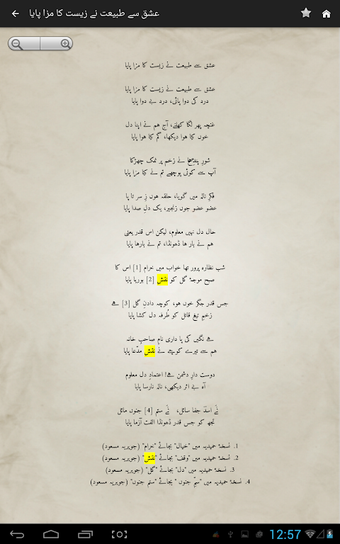 عشق سے طبیعت نے زیست کا مزا پایا
عشق سے طبیعت نے زیست کا مزا پایا
عشق سے طبیعت نے زیست کا مزا پایا
درد کی دوا پائی، درد بے دوا پایا
غنچہ پھر لگا کھلنے، آج ہم نے اپنا دل
خوں کیا ہوا دیکھا، گم کیا ہوا پایا
شورِ پندِ ناصح نے زخم پر نمک چھڑکا
آپ سے کوئی پوچھے تم نے کیا مزا پایا
فکرِ نالہ میں گویا، حلقہ ہوں زِ سر تا پا
عضو عضو جوں زنجیر، یک دلِ صدا پایا
حال دل نہیں معلوم، لیکن اس قدر یعنی
ہم نے بار ہا ڈھونڈا، تم نے بارہا پایا
شب نظارہ پرور تھا خواب میں خرام [1] اس کا
صبح موجۂ گل کو نقش [2] بوریا پایا
جس قدر جگر خوں ہو، کوچہ دادنِ گل [3] ہے
زخمِ تیغِ قاتل کو طُرفہ دل کشا پایا
ہے نگیں کی پا داری نامِ صاحبِ خانہ
ہم سے تیرے کوچے نے نقشِ مدّعا پایا
دوست دارِ دشمن ہے! اعتمادِ دل معلوم
آہ بے اثر دیکھی، نالہ نارسا پایا
نَے اسدؔ جفا سائل، نَے ستم [4] جنوں مائل
تجھ کو جس قدر ڈھونڈا الفت آزما پایا
1. نسخۂ حمیدیہ میں "خیال" بجائے "خرام" (جویریہ مسعود)
2. نسخۂ حمیدیہ میں "وقف" بجائے "نقش" (جویریہ مسعود)
3. نسخۂ حمیدیہ میں "دل" بجائے "گل" (جویریہ مسعود)
4. نسخۂ حمیدیہ میں "سمِّ جنوں" بجائے "ستم جنوں" (جویریہ مسعود)
12:57